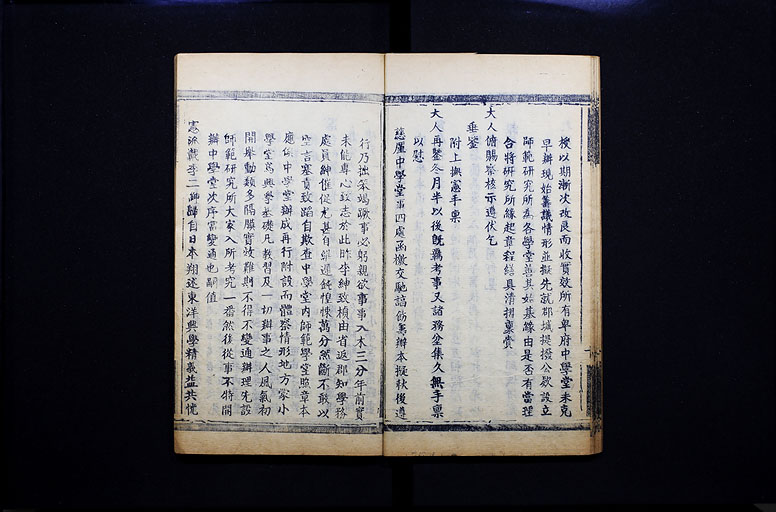 梭以期漸次改良而收實效所有卑府中學堂未克
早辦現始籌議情形並擬先就郡城提撥公欵設立
師範研究所為各學堂首其始基緣由是否有當理
合將研究所緣起章程繕具清摺稟賫
大人俯賜察核示遵伏乞
垂鑒
附上撫憲手稟
大人再鑒冬月半以後旣羈考事又諸務坌集久無手稟
以慰
慈廑中學堂事四處函檄交馳諄飭籌辦本擬秋後遵
行乃拙笨竭蹶事必躬親欲事事入木三分年前實
未能專心致志於此昨李紳致楨由省返郡知學務
處員紳催促尤甚自維遲鈍惶悚萬分然斷不敢以
空言塞責致蹈自欺查中學堂內師範學堂照章本
應俟中學堂辦成再行附設而體察情形地方蒙小
學堂為興學基礎凡教習及一切辦事之人風氣初
開舉動類多隔膜實效難期不得不變通辦理先設
師範研究所大家入所考究一番然後從事不特開
辦中學堂次序當變通也嗣值
憲派戴李二師歸自日本翔述東洋興學精義益共恍